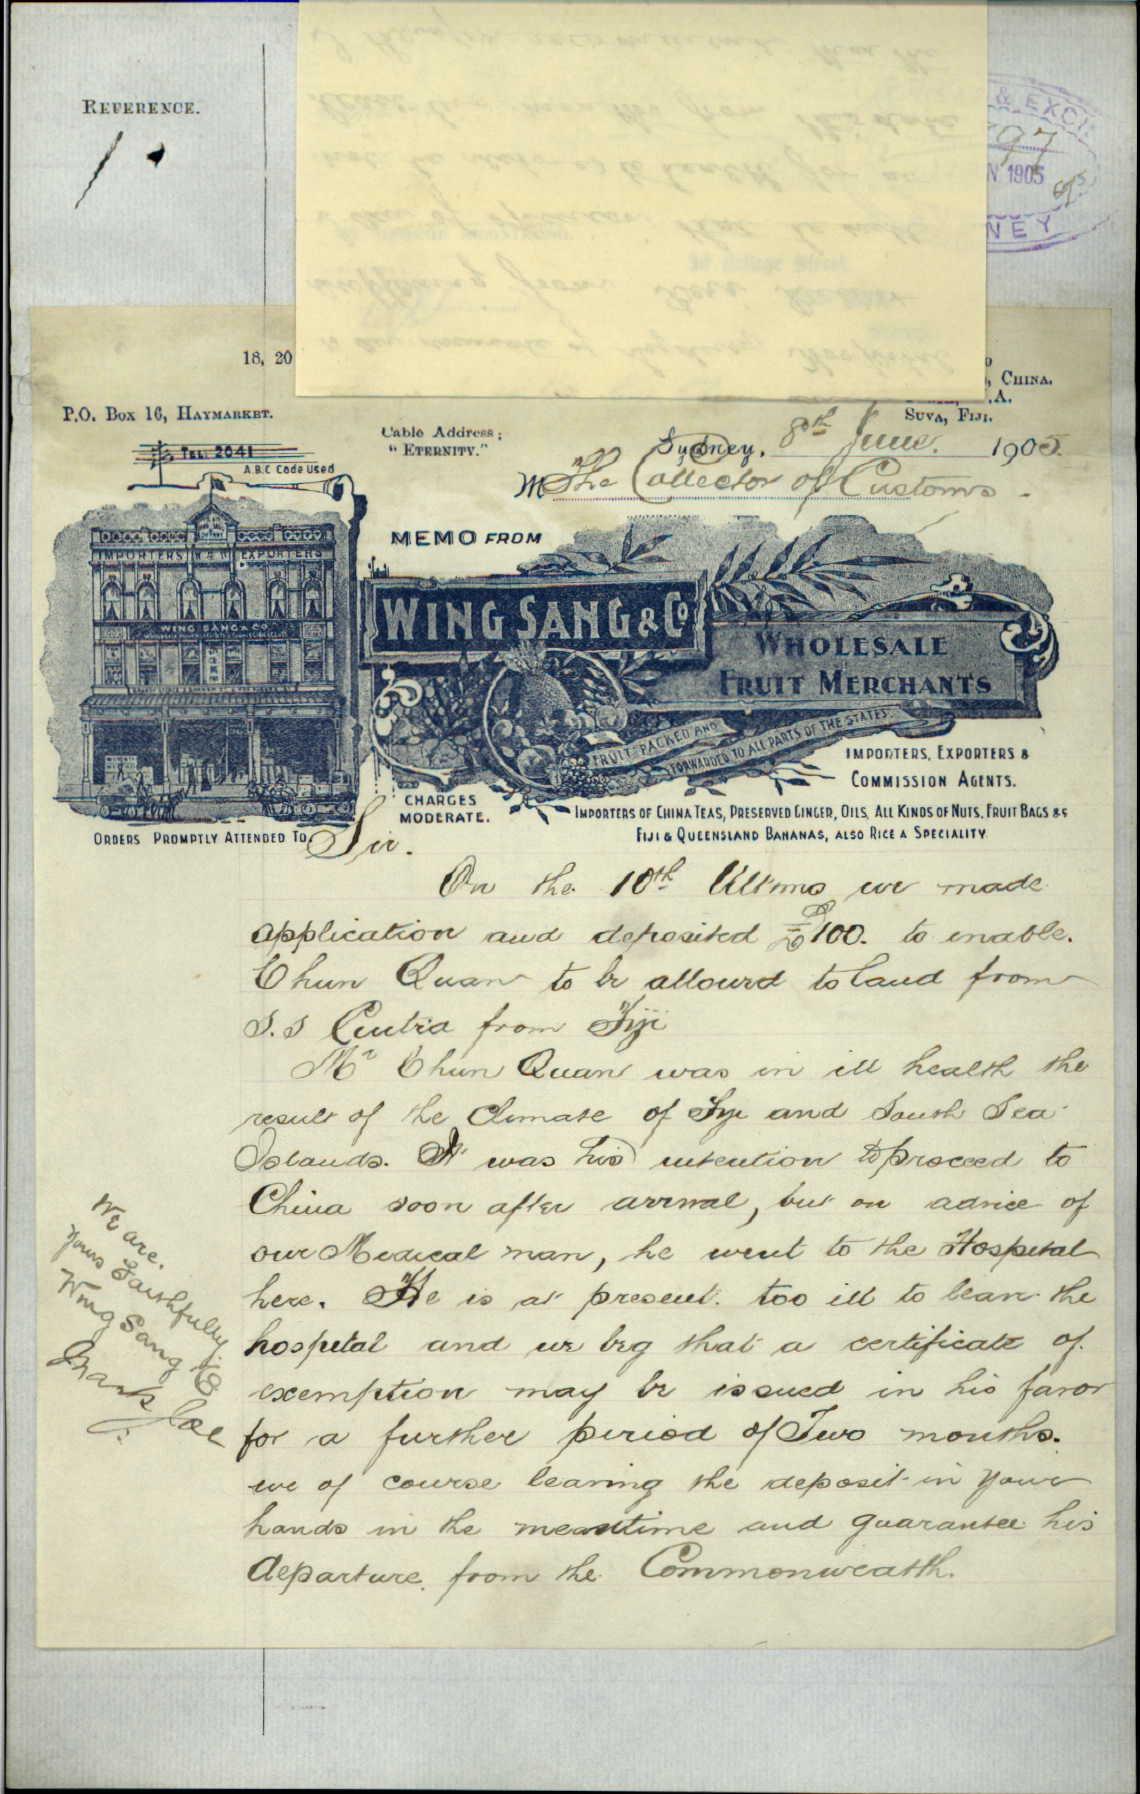 REFERENCE.
& EXCI
297
N 1905
NEY
18, 20
, CHINA.
.A.
SUVA, FIJI.
P.O. BOX 16, HAYMARKET.
Cable Address;
"ETERNITY."
TEL: 2041
A.B.C Code Used
Sydney, 8th June. 1905
M The Collector of Customs.
MEMO FROM
IMPORTERS W.S & CO EXPORTERS
WING SANG & CO
WING SANG & CO
WHOLESALE
FRUIT MERCHANTS
FRUIT PACKED AND
FORWARDED TO ALL PARTS OF THE STATES.
IMPORTERS, EXPORTERS &
COMMISSION AGENTS.
CHARGES
MODERATE.
IMPORTERS OF CHINA TEAS, PRESERVED GINGER, OILS, ALL KINDS OF NUTS, FRUIT BAGS &c
FIJI & QUEENSLAND BANANAS, ALSO RICE A SPECIALITY
ORDERS PROMPTLY ATTENDED TO.
Sir.
On the 10th Ultimo we made
application and deposited £100. to enable.
Chun Quan to be allowed to land from
S.S Centra from Fiji
Mr Chun Quan was in ill health the
result of the Climate of Fiji and South Sea
Islands. It was his intention to proceed to
China soon after arrival, but on advice of
our Medical man, he went to the Hospital
here. He is at present. too ill to leave the
hospital and we beg that a certificate of.
exemption may be issued in his favor
for a further period of Two months.
we of course leaving the deposit in your
hands in the meantime and guarantee his
departure. from the Commonwealth.
We are.
Yours Faithfully
Wing Sang & Co